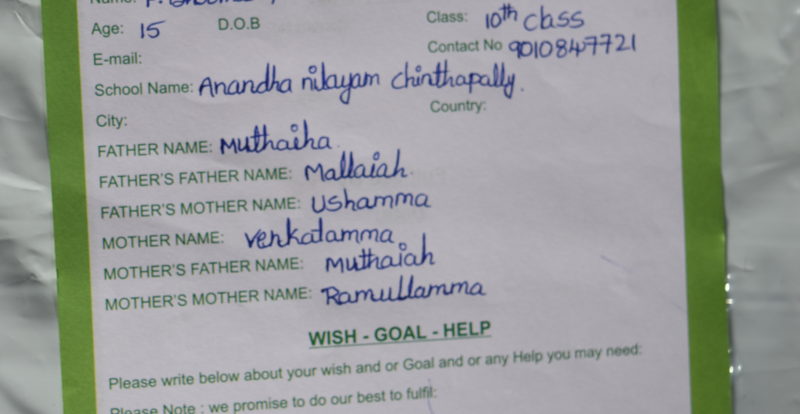 Name:
Age: 15 D.O.B Class: 10th class
E-mail: Contact No 9010847721
School Name: Anandha nilayam chinthapally.
City: Country:
FATHER NAME: Muthaiha
FATHER'S FATHER NAME: Mallaiah
FATHER'S MOTHER NAME: Ushamma
MOTHER NAME: Venkatamma
MOTHER'S FATHER NAME: Muthaiah
MOTHER'S MOTHER NAME: Ramullamma
WISH - GOAL - HELP
Please write below about your wish and or Goal and or any Help you may need:
Please Note : we promise to do our best to fulfil: